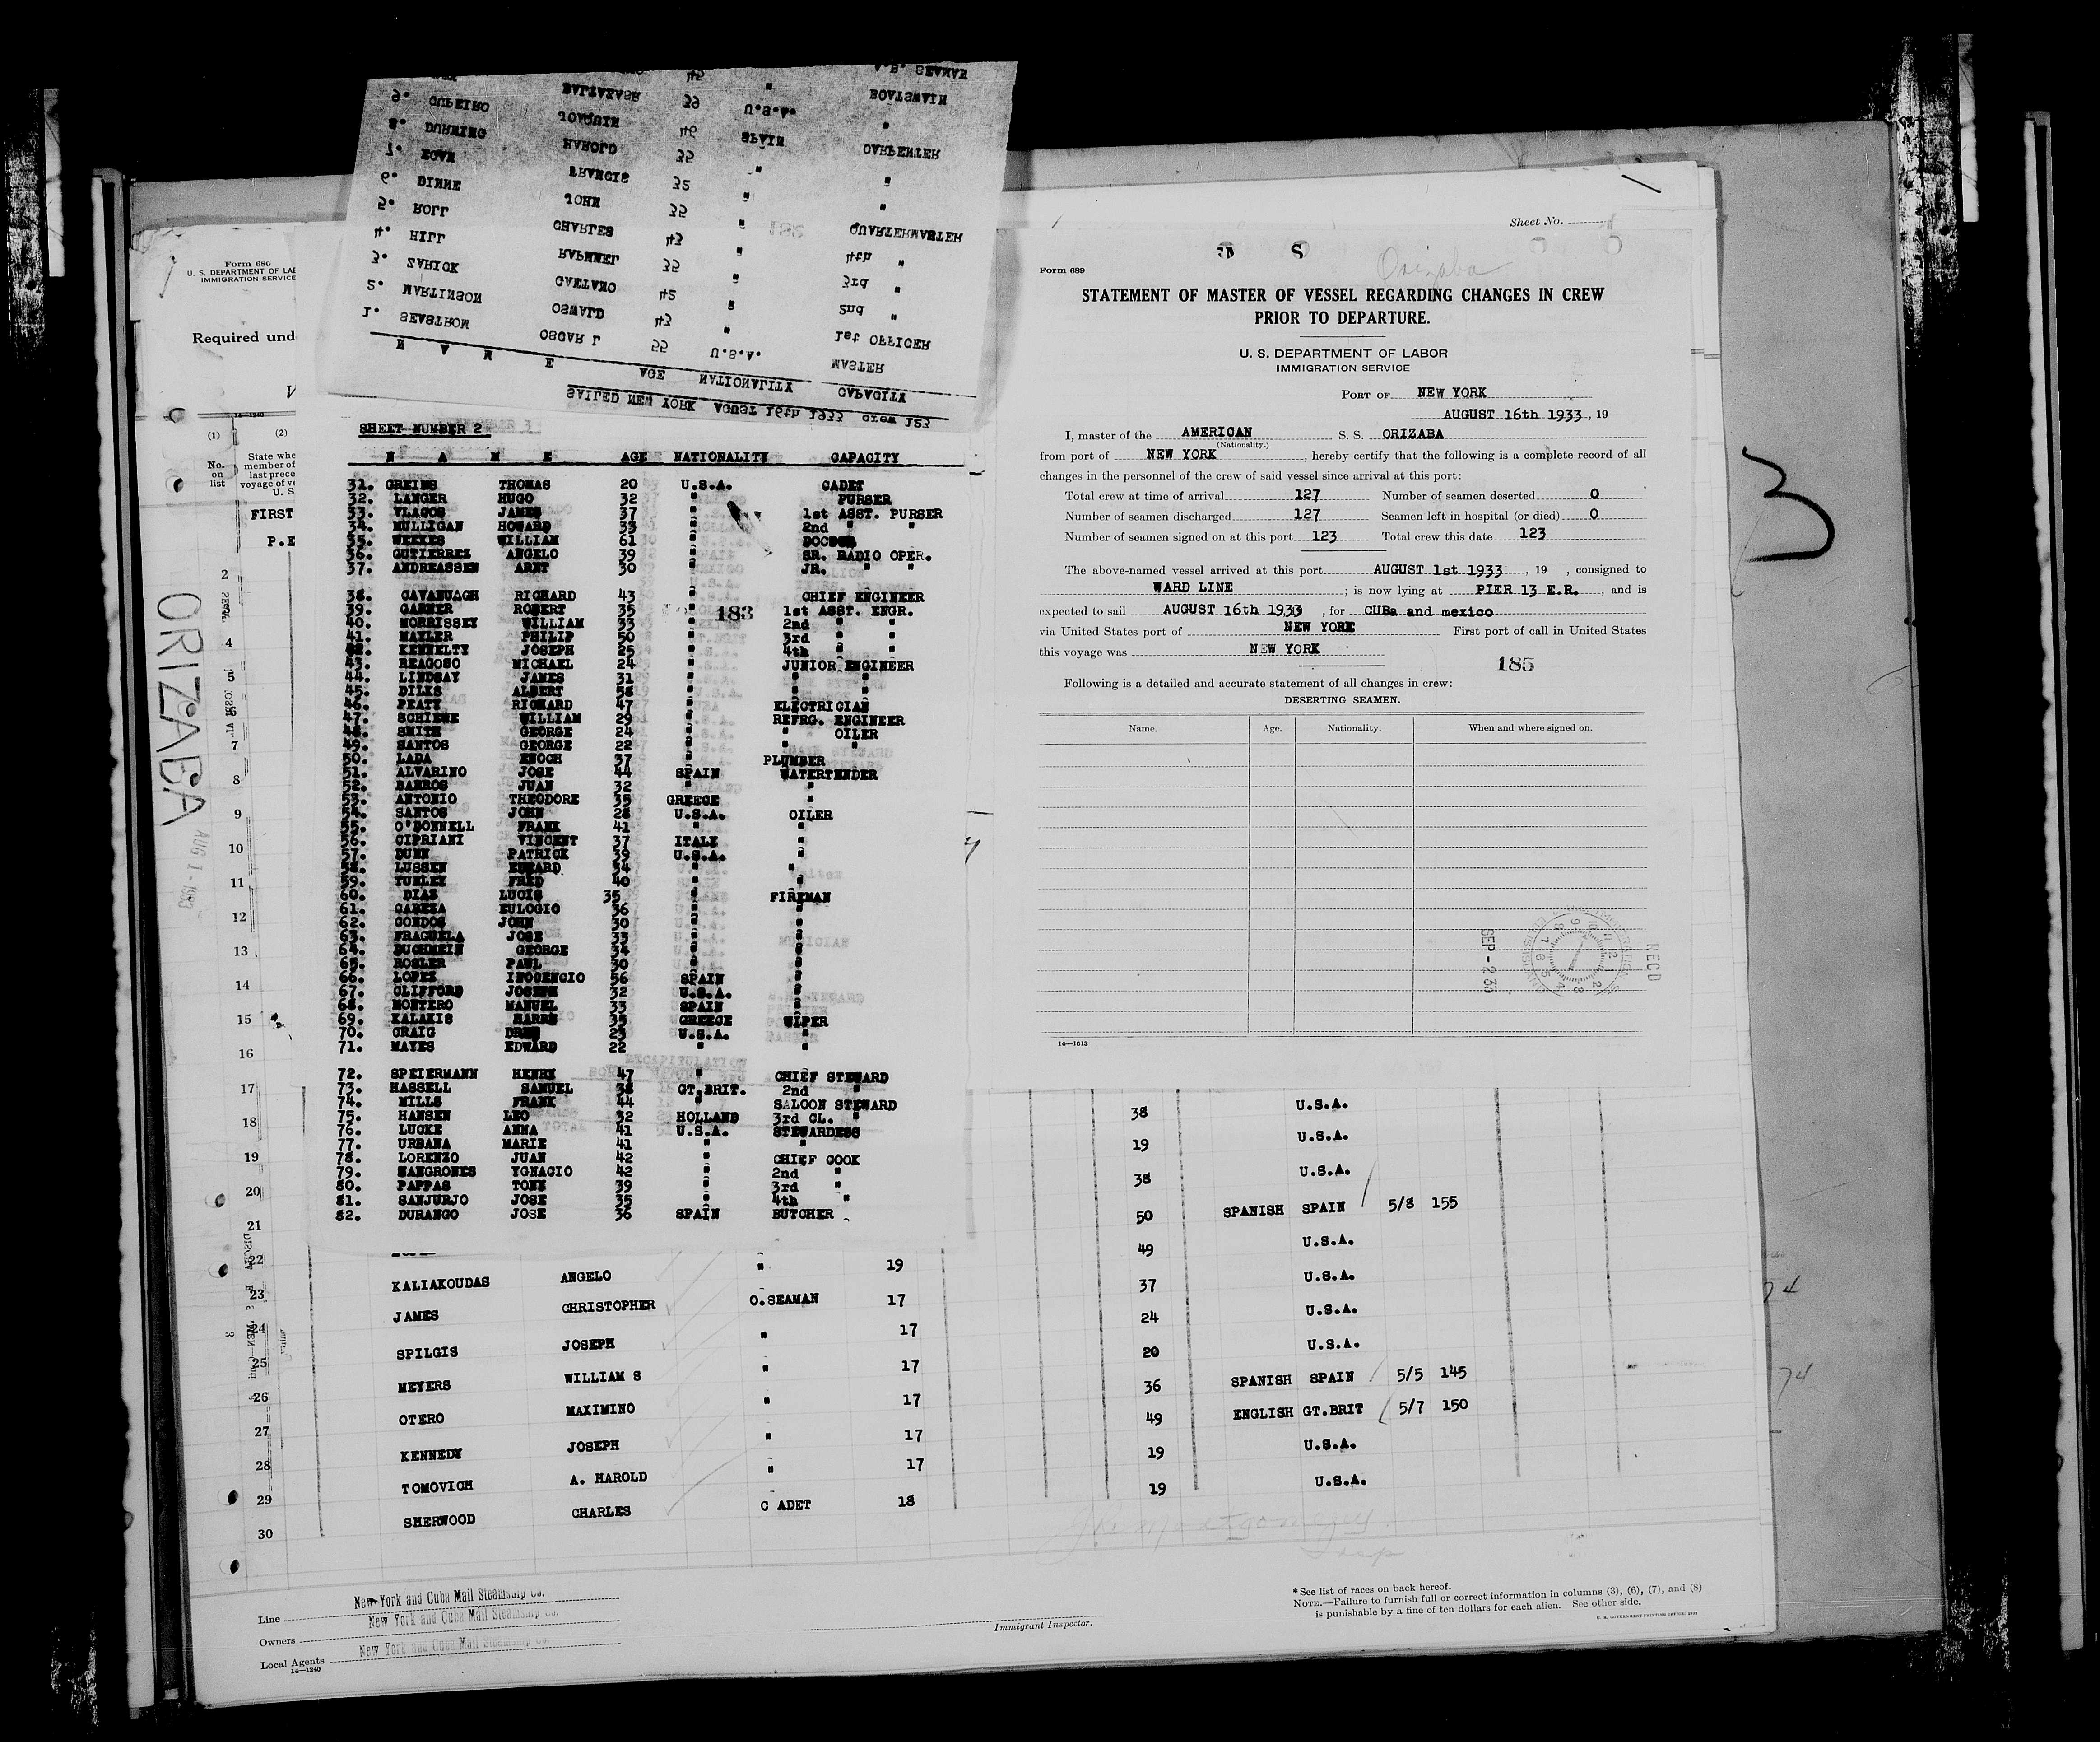 Form 686
U. S. DEPARTMENT OF LAB
IMMIGRATION SERVICE
Required und
14—1240
(1)
(2)
No. on list
State whe
member of
last prece
voyage of ve
U. S
FIRST
P.E
2
4
5
6
7
8
9
10
11
12
13
14
15
16
17
18
19
20
21
22
23
24
25
26
27
28
29
30
ORIZABA
AUG 1 - 1933
SAILED NEW YORK AUGUST 16th 1933 CREW 123
N A M E AGE NATIONALITY CAPACITY
MASTER
1. SEASTROM OSCAR L 55 U.S.A. 1st OFFICER
2. MARTINSON OSWALD 43 " 2nd "
3. ZARICK GAETANO 42 " 3rd "
4. HILL RAPHAEL 35 " 4th "
5. HOLT CHARLES 43 " QUARTERMASTER
6. DINNE JOHN 35 " "
7. FRANCIS 32 " "
8. DURNING HAROLD 35 " CARPENTER
9. JOAQUIN 46 SPAIN "
39 U.S.A. BOATSWAIN
42 " A.B. SEAMAN
SHEET NUMBER 2
N A M E AGE NATIONALITY CAPACITY
31. GREIMS THOMAS 20 U.S.A. CADET
32. LANGER HUGO 32 " PURSER
33. VLAGOS JAMES 37 " 1st ASST. PURSER
34. MULLIGAN HOWARD 33 " 2nd " "
35. WEEKES WILLIAM 61 " DOCTOR
36. GUTIERREZ ANGELO 39 " SR. RADIO OPER.
37. ANDREASSEN ARNT 30 " JR. " "
38. CAVANUAGH RICHARD 43 " CHIEF ENGINEER
39. GARNER ROBERT 35 " 1st ASST. ENGR.
183
40. MORRISSEY WILLIAM 33 " 2nd " "
41. NAYLER PHILIP 50 " 3rd " "
42. KENNELTY JOSEPH 25 " 4th " "
43. REAGOSO MICHAEL 24 " JUNIOR ENGINEER
44. LINDSAY JAMES 31 " " "
45. DILKS ALBERT 58 " " "
46. PEATT RICHARD 47 " ELECTRICIAN
47. SCHIEWE WILLIAM 29 " REFRG. ENGINEER
48. SMITH GEORGE 24 " " OILER
49. SANTOS GEORGE 22 " " "
50. LADA ENOCH 37 " PLUMBER
51. ALVARINO JOSE 44 SPAIN WATERTENDER
52. BARROS JUAN 32 " "
53. ANTONIO THEODORE 35 GREECE "
54. SANTOS JOHN 28 U.S.A. OILER
55. O'DONNELL FRANK 41 " "
56. CIPRIANI VINCENT 37 ITALY "
57. DUNN PATRICK 39 U.S.A. "
58. LUSSEN EDWARD 34 " "
59. TURLEY FRED 40 " "
60. DIAS LUOIS 35 " FIREMAN
61. CABEZA EULOGIO 36 " "
62. CONDOS JOHN 30 " "
63. FRAGUELA JOSE 33 " "
64. BUCHNEIN GEORGE 34 " "
65. ROSLER PAUL 30 " "
66. LOPEZ INOCENCIO 56 SPAIN "
67. CLIFFORD JOSEPH 32 U.S.A. "
68. MONTERO MANUEL 33 SPAIN "
69. KALAKIS HARRY 35 GREECE WIPER
70. CRAIG 23 U.S.A. "
71. HAYES EDWARD 22 " "
72. SPEIERMANN HENRY 47 " CHIEF STEWARD
73. HASSELL SAMUEL 38 GT.BRIT. 2nd "
74. MILLS FRANK 44 " SALOON STEWARD
75. HANSEN LEO 32 HOLLAND 3rd CL. "
76. LUCKE ANNA 41 U.S.A. STEWARDESS
77. URBANA MARIE 41 " "
78. LORENZO JUAN 42 " CHIEF COOK
79. SANGRONES YGNACIO 42 " 2nd "
80. PAPPAS TONY 39 " 3rd "
81. SANJURJO JOSE 35 " 4th "
82. DURANGO JOSE 36 SPAIN BUTCHER
38 U.S.A.
19 U.S.A.
38 U.S.A.
50 SPANISH SPAIN 5/8 155
49 U.S.A.
KALIAKOUDAS ANGELO " 19 37 U.S.A.
JAMES CHRISTOPHER O.SEAMAN 17 24 U.S.A.
SPILGIS JOSEPH " 17 20 U.S.A.
MEYERS WILLIAM S " 17 36 SPANISH SPAIN 5/5 145
OTERO MAXIMINO " 17 49 ENGLISH GT.BRIT 5/7 150
KENNEDY JOSEPH " 17 19 U.S.A.
TOMOVICH A. HAROLD " 17 19 U.S.A.
SHERWOOD CHARLES C ADET 18
Line New York and Cuba Mail Steamship Co.
Owners New York and Cuba Mail Steamship Co.
Local Agents New York and Cuba Mail Steamship Co.
14—1240
Immigrant Inspector.
* See list of races on back hereof.
NOTE.—Failure to furnish full or correct information in columns (3), (6), (7), and (8)
is punishable by a fine of ten dollars for each alien. See other side.
U. S. GOVERNMENT PRINTING OFFICE
Sheet No.
Form 689
Orizaba
STATEMENT OF MASTER OF VESSEL REGARDING CHANGES IN CREW
PRIOR TO DEPARTURE.
U. S. DEPARTMENT OF LABOR
IMMIGRATION SERVICE
PORT OF NEW YORK
AUGUST 16th 1933, 19
I, master of the AMERICAN S. S. ORIZABA
(Nationality.)
from port of NEW YORK, hereby certify that the following is a complete record of all
changes in the personnel of the crew of said vessel since arrival at this port:
Total crew at time of arrival 127 Number of seamen deserted 0
Number of seamen discharged 127 Seamen left in hospital (or died) 0
Number of seamen signed on at this port 123 Total crew this date 123
The above-named vessel arrived at this port AUGUST 1st 1933, 19 , consigned to
WARD LINE; is now lying at PIER 13 E.R., and is
expected to sail AUGUST 16th 1933, for CUBa and mexico
via United States port of NEW YORK First port of call in United States
this voyage was NEW YORK
185
Following is a detailed and accurate statement of all changes in crew:
DESERTING SEAMEN.
Name. Age. Nationality. When and where signed on.
SEP -2 33
RECD
14—1613
3
74
74